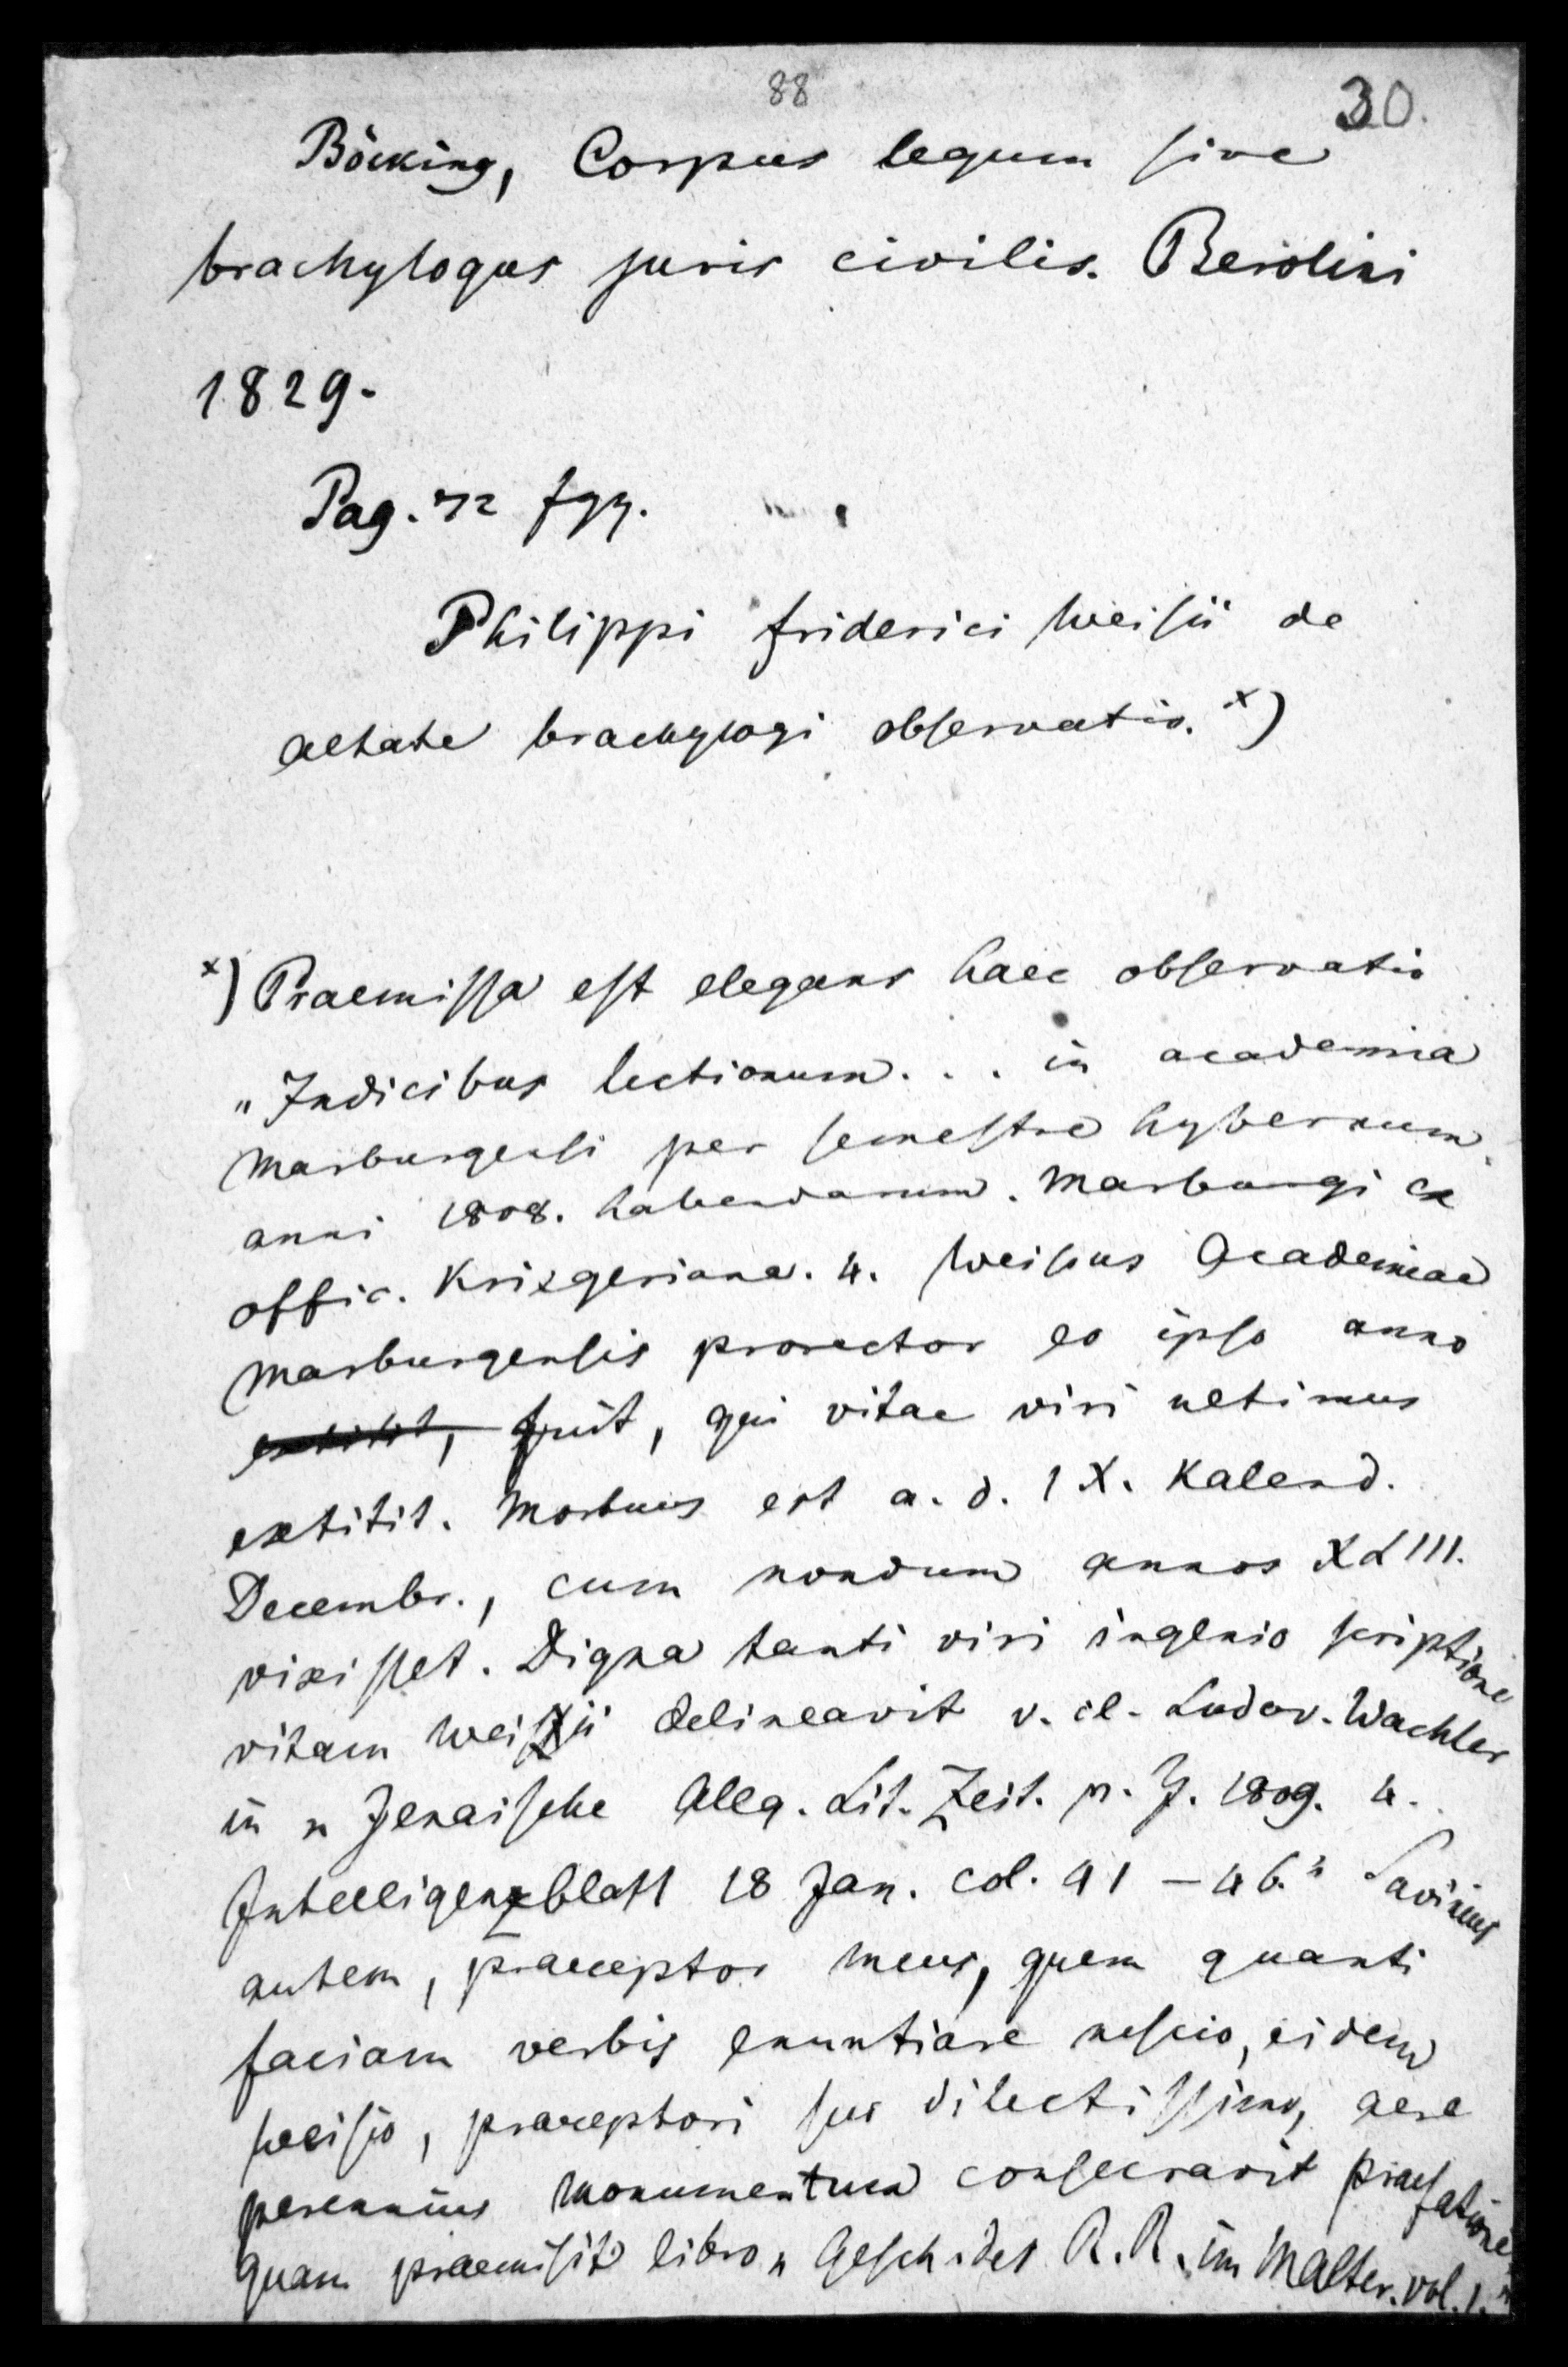 88
30.
Böcking, Corpus legum sive
brachylogus juris civilis. Berolini
1829.
Pag. 72 fgg.
Philippi Friderici Weisii de
aetate brachylogi observatio. x)
x) Praemissa est elegans haec observatio
„Indicibus lectionum . . . in academia
Marburgensi per semestre hybernum
anni 1808. habendarum. Marburgi ex
offic. Kriegeriana. 4. Weisius Academiae
Marburgensis prorector eo ipso anno
extitit, fuit, qui vitae viri ultimus
extitit. Mortuus est a. d. IX. Kalend.
Decembr., cum nondum annos XLIII.
vixisset. Digna tanti viri ingenio scriptione
vitam Weisii delineavit v. cl. Ludov. Wachler
in „Jenaische Allg. Lit. Zeit. v. J. 1809. 4.
Intelligenzblatt 18 Jan. col. 41 – 46." Savinius
autem, praeceptor meus, quem quanti
faciam verbis enuntiare nescio, eidem
Weisio, praeceptori suo dilectissimo, aere
perennius monumentum consecravit praefatione,
quam praemisit libro „Gesch. des R. R. im Malter. vol. 1."